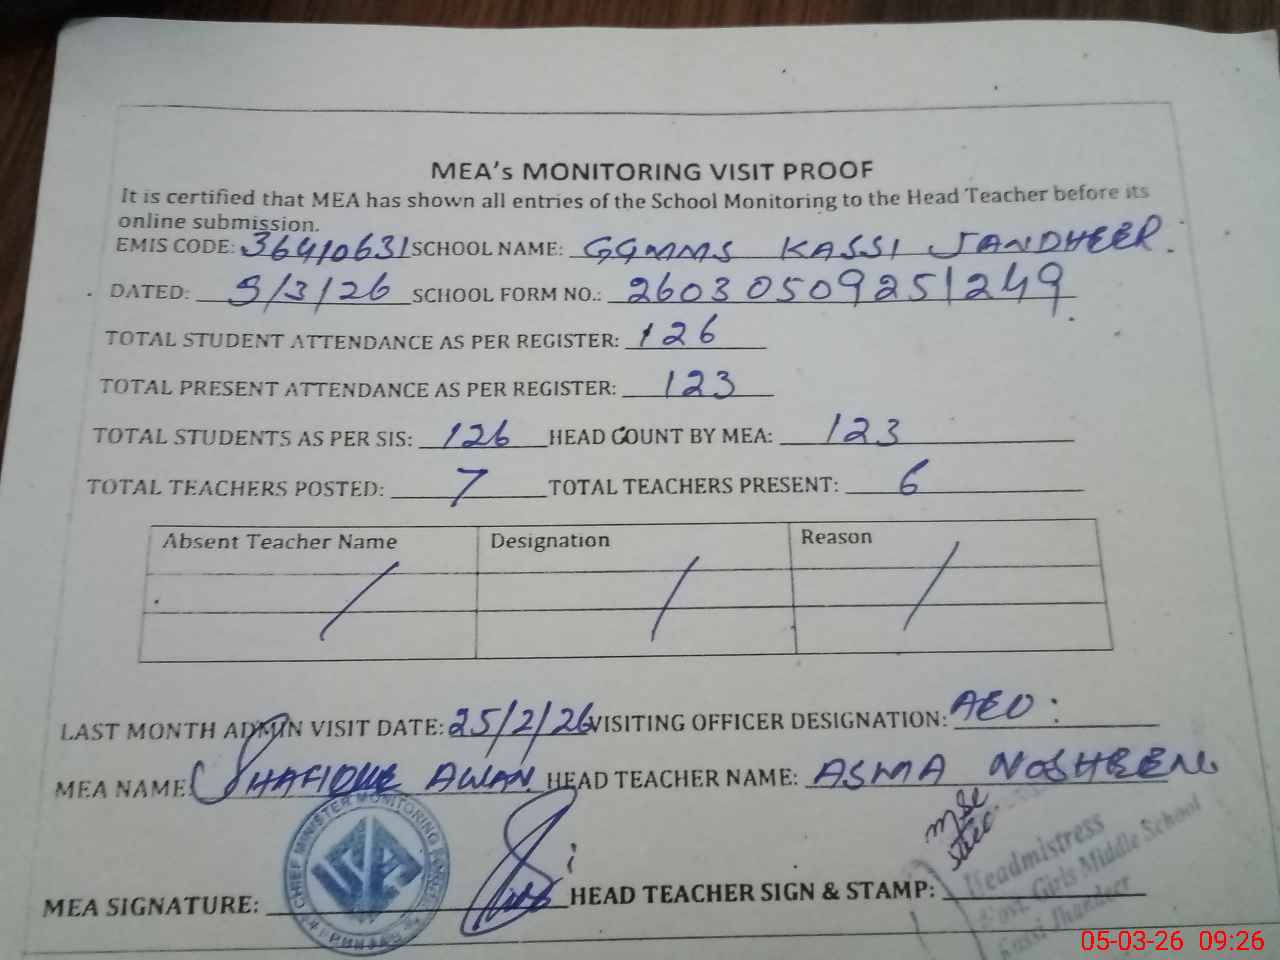 MEA's MONITORING VISIT PROOF
It is certified that MEA has shown all entries of the School Monitoring to the Head Teacher before its
online submission.
EMIS CODE: 36410631 SCHOOL NAME: GGMMS KASSI JANDHEER.
DATED: 5/3/26 SCHOOL FORM NO.: 26030509251249
TOTAL STUDENT ATTENDANCE AS PER REGISTER: 126
TOTAL PRESENT ATTENDANCE AS PER REGISTER: 123
TOTAL STUDENTS AS PER SIS: 126 HEAD COUNT BY MEA: 123
TOTAL TEACHERS POSTED: 7 TOTAL TEACHERS PRESENT: 6
Absent Teacher Name Designation Reason
LAST MONTH ADMIN VISIT DATE: 25/2/26 VISITING OFFICER DESIGNATION: AEO:
MEA NAME SHAFIQUE AWAN HEAD TEACHER NAME: ASMA NOSHEEN
CHIEF MINISTER MONITORING
MEA SIGNATURE: HEAD TEACHER SIGN & STAMP:
Headmistress
Govt. Girls Middle School
Kassi Jhandeer
05-03-26 09:26